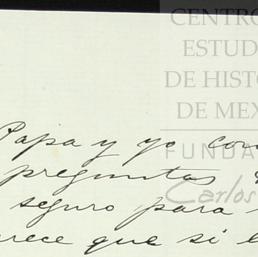 CENTRO
ESTUD
DE HISTO
DE MEX
FUNDA
Carlos
Papa y yo con
preguntas
seguro para
rece que si